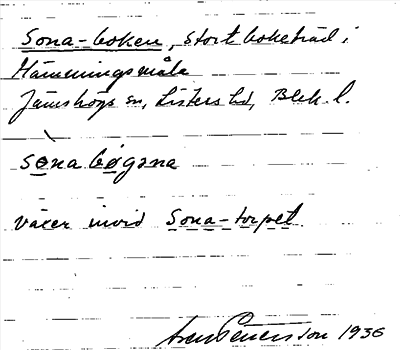 Sona-boken, stort bokträd i
Hämmingsmåla
Jämshögs sn, Listers hd, Blek. l.
sònabøgǝna
växer invid Sona-torpet.
Sven Petersson 1936